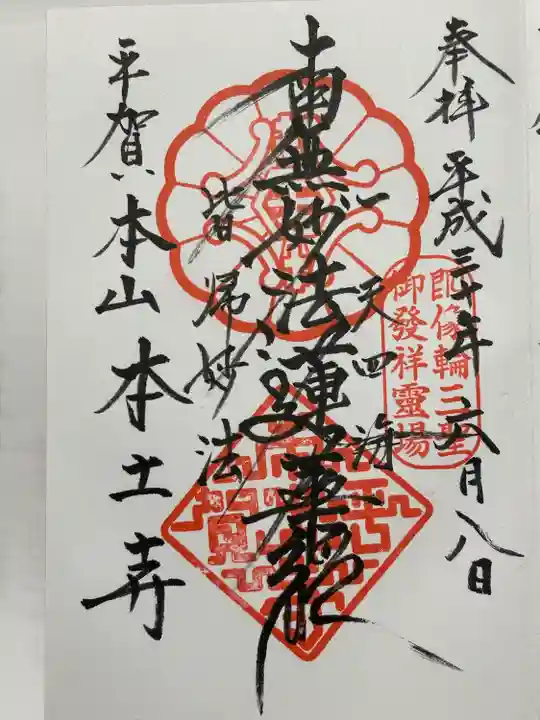 奉拝 平成三十年三月八日
郎像輪三聖
御發祥靈場
一天四海
南無妙法蓮華經
皆帰妙法
平賀 本山本土寺